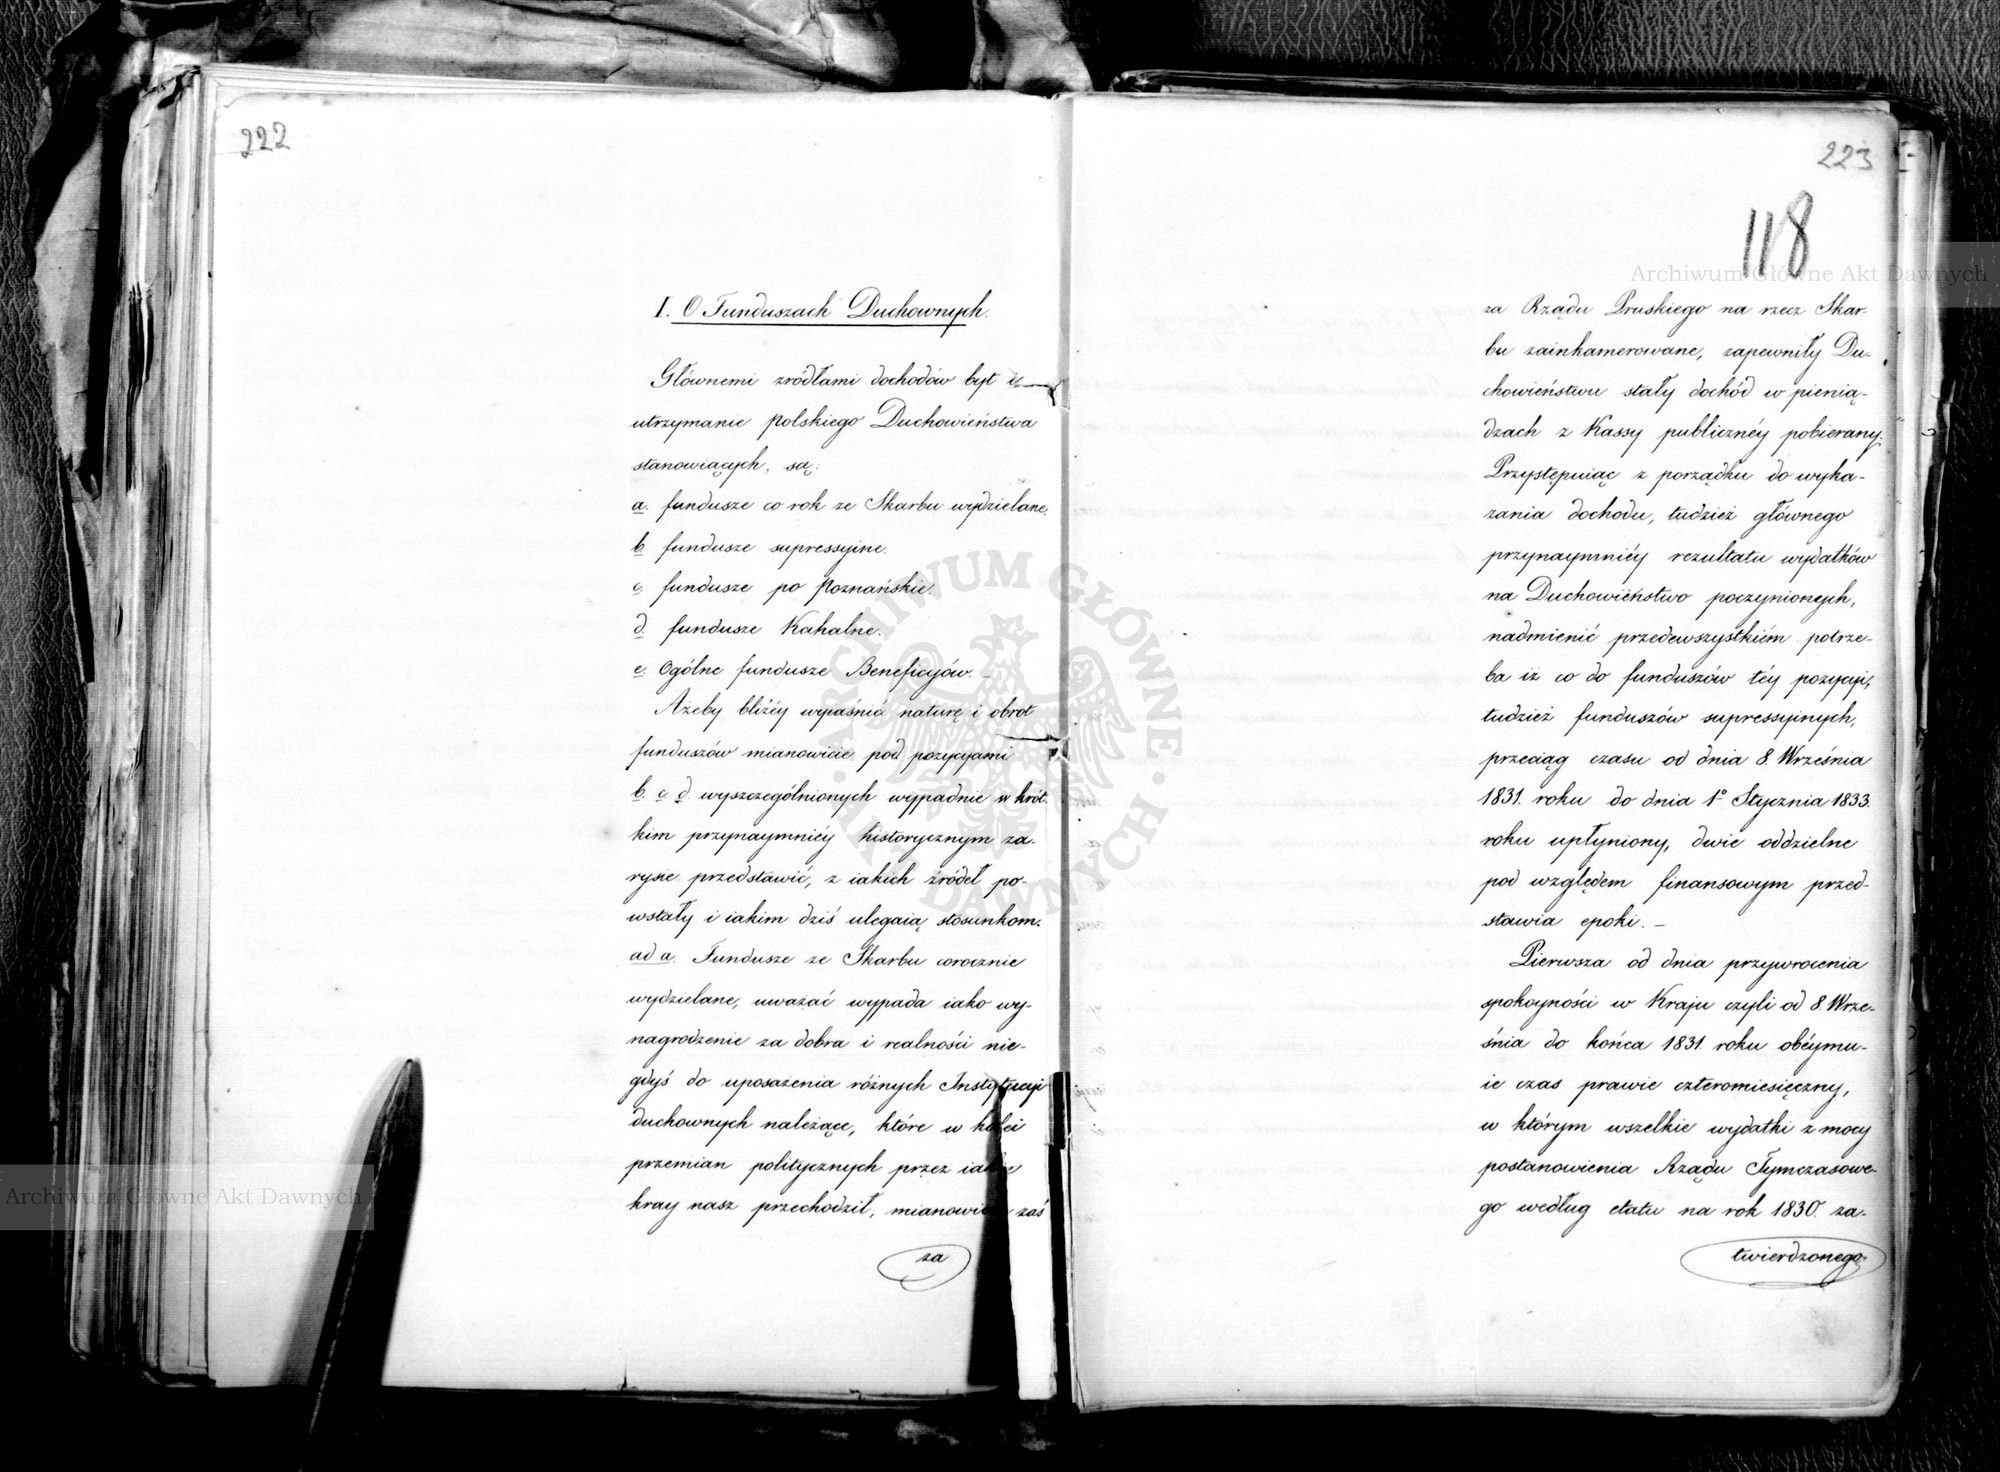 222
I. O Funduszach Duchownych.
Głównemi zródłami dochodów byt i
utrzymanie polskiego Duchowieństwa
stanowiących, są:
a. fundusze co rok ze Skarbu wydzielane.
b. fundusze supressyine.
c. fundusze po Poznańskie.
d. fundusze Kahalne.
e. Ogólne fundusze Beneficyów. –
Ażeby bliżéy wyiaśnić naturę i obrot
funduszów mianowicie pod pozycyami
b. c. d. wyszczególnionych wypadnie w krót-
kim przynaymniéy historycznym za-
rysie przedstawić, z iakich źródeł po-
wstały i iakim dziś ulegaią stosunkom.
ad a. Fundusze ze Skarbu corocznie
wydzielane, uważać wypada iako wy-
nagrodzenie za dobra i realności nie-
gdyś do uposażenia różnych Instytucyi
duchownych należące, które w kolei
przemian politycznych przez iakie
kray nasz przechodził, mianowicie zaś
za
223
118
za Rządu Pruskiego na rzecz Skar-
bu zainkamerowane, zapewniły Du-
chowieństwu stały dochód w pienią-
dzach z Kassy publicznéy pobierany.
Przystępuiąc z porządku do wyka-
zania dochodu, tudzież głównego
przynaymniéy rezultatu wydatków
na Duchowieństwo poczynionych,
nadmienić przedewszystkiém potrze-
ba iż co do funduszów téy pozycyi,
tudzież funduszów supressyinych,
przeciąg czasu od dnia 8. Września
1831. roku do dnia 1º Stycznia 1833.
roku upłyniony, dwie oddzielne
pod względem finansowym przed-
stawia epoki. –
Pierwsza od dnia przywrocenia
spokoyności w Kraju czyli od 8. Wrze-
śnia do końca 1831. roku obéymu-
ie czas prawie czteromiesięczny,
w którym wszelkie wydatki z mocy
postanowienia Rządu Tymczasowe-
go według etatu na rok 1830. za-
twierdzonego
Archiwum Główne Akt Dawnych
Archiwum Główne Akt Dawnych
ARCHIWUM GŁÓWNE AKT DAWNYCH